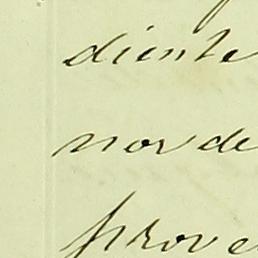 diente
nor de
prove